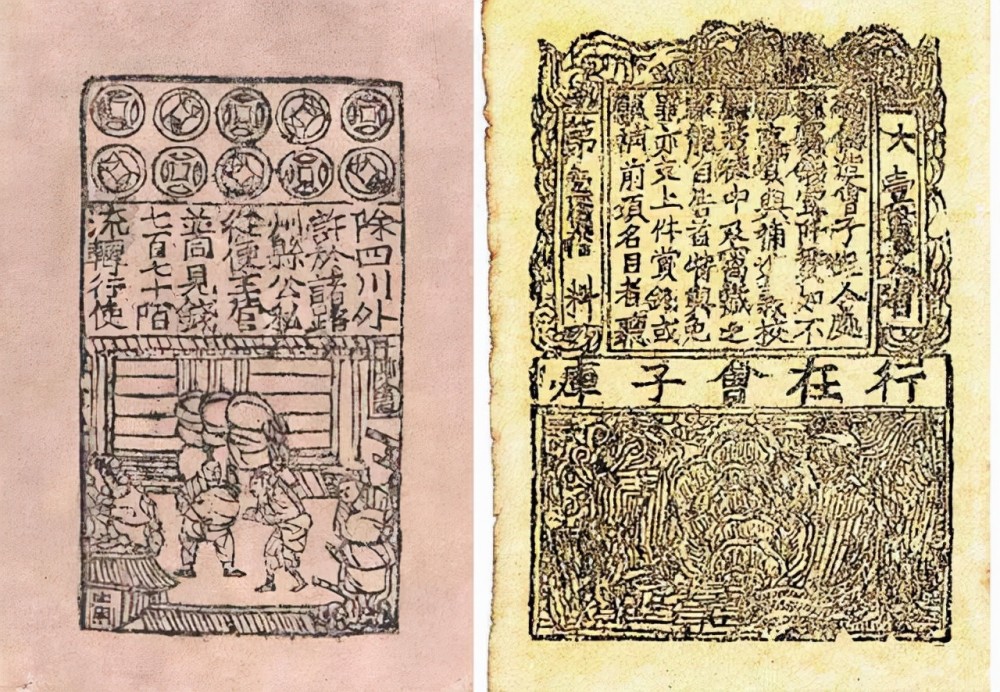 除四川外
許於諸路
州縣公私
從便主管
並同見錢
七百七十陌
流轉行使
大壹貫文省
造會子犯人處
賞錢壹阡貫如不
支賞與補進義校
徒中及窩藏之
能自告首特與免
罪亦支上件賞錢或
願前項名目者聽
第料
行在會子庫